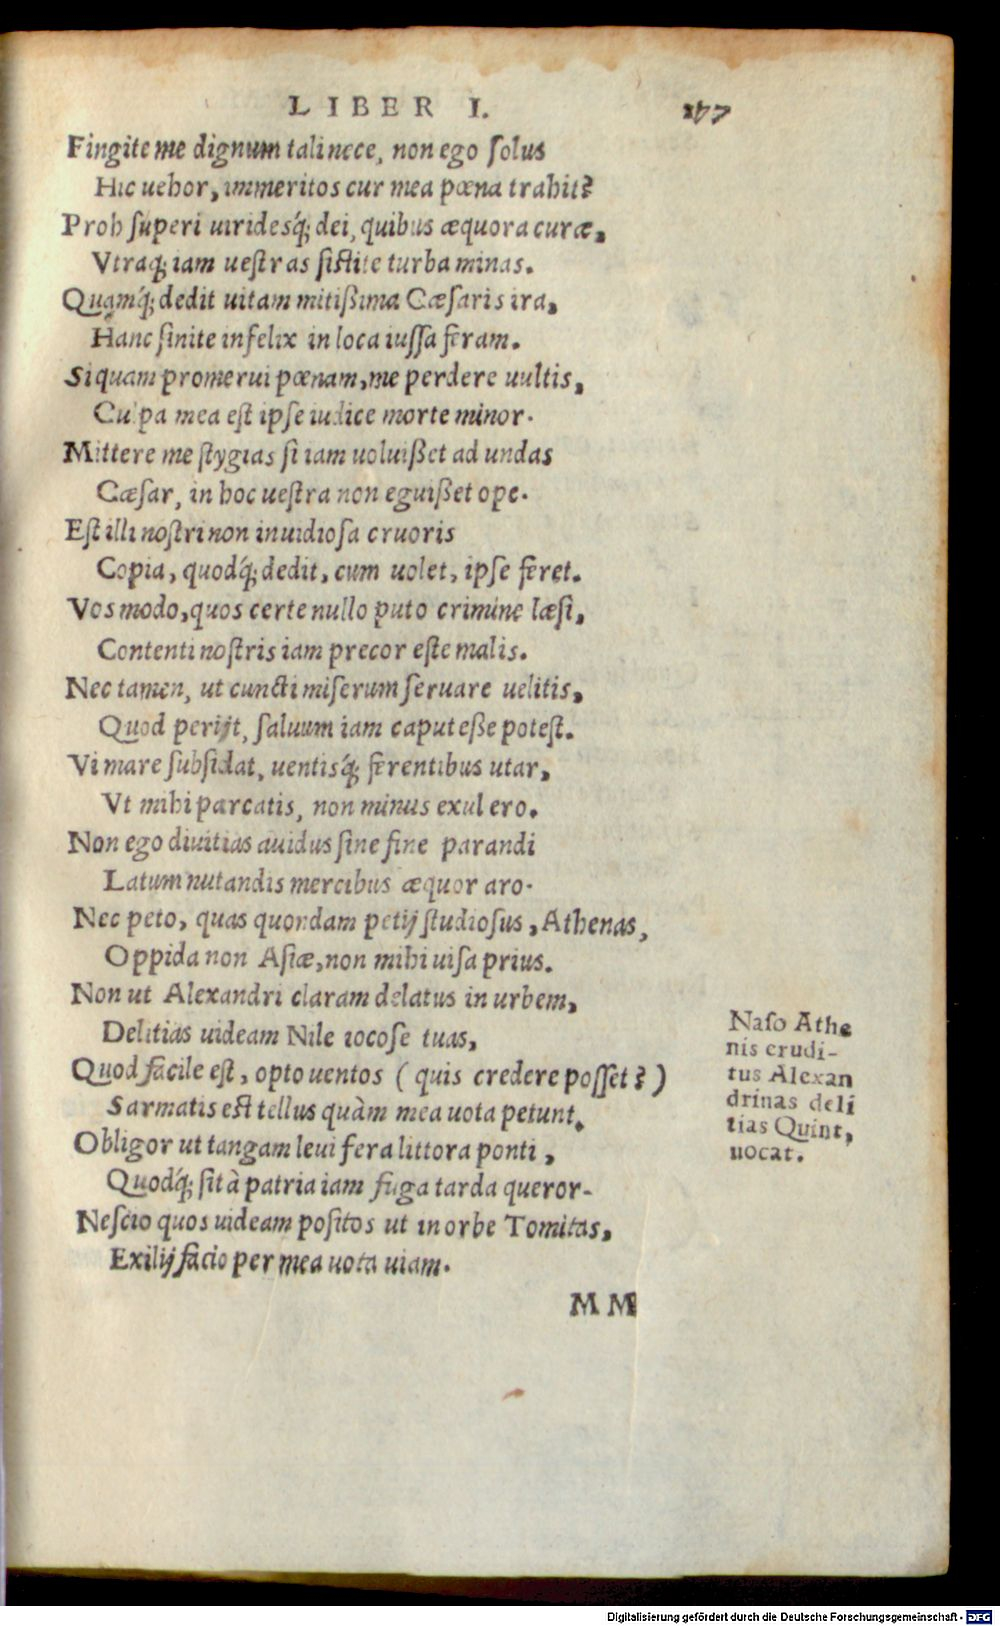 LIBER I. 147
Fingite me dignum tali nece, non ego ſolus
Hic uehor, immeritos cur mea pœna trahit?
Proh ſuperi uiridesq́; dei, quibus æquora curæ,
Vtraq; iam ueſtras ſiſtite turba minas.
Quamq́; dedit uitam mitißima Cæſaris ira,
Hanc ſinite infelix in loca iuſſa feram.
Si quam promerui pœnam, me perdere uultis,
Culpa mea eſt ipſe iudice morte minor.
Mittere me ſtygias ſi iam uoluißet ad undas
Cæſar, in hoc ueſtra non eguißet ope.
Eſt illi noſtri non inuidioſa cruoris
Copia, quodq́; dedit, cum uolet, ipſe feret.
Vos modo, quos certe nullo puto crimine læſi,
Contenti noſtris iam precor eſte malis.
Nec tamen, ut cuncti miſerum ſeruare uelitis,
Quod perijt, ſaluum iam caput eße poteſt.
Vi mare ſubſidat, uentisq́; ferentibus utar,
Vt mihi parcatis, non minus exul ero.
Non ego diuitias auidus ſine fine parandi
Latum nutandis mercibus æquor aro.
Nec peto, quas quondam petij ſtudioſus, Athenas,
Oppida non Aſiæ, non mihi uiſa prius.
Non ut Alexandri claram delatus in urbem,
Delitias uideam Nile iocoſe tuas,
Quod facile eſt, opto uentos (quis credere poſſet?)
Sarmatis eſt tellus quàm mea uota petunt.
Obligor ut tangam leui fera littora ponti,
Quodq́; ſit à patria iam fuga tarda queror.
Neſcio quos uideam poſitos ut in orbe Tomitas,
Exilij facio per mea uota uiam.
Naſo Athe
nis erudi-
tus Alexan
drinas deli
tias Quint,
uocat.
MM
Digitalisierung gefördert durch die Deutsche Forschungsgemeinschaft - DFG